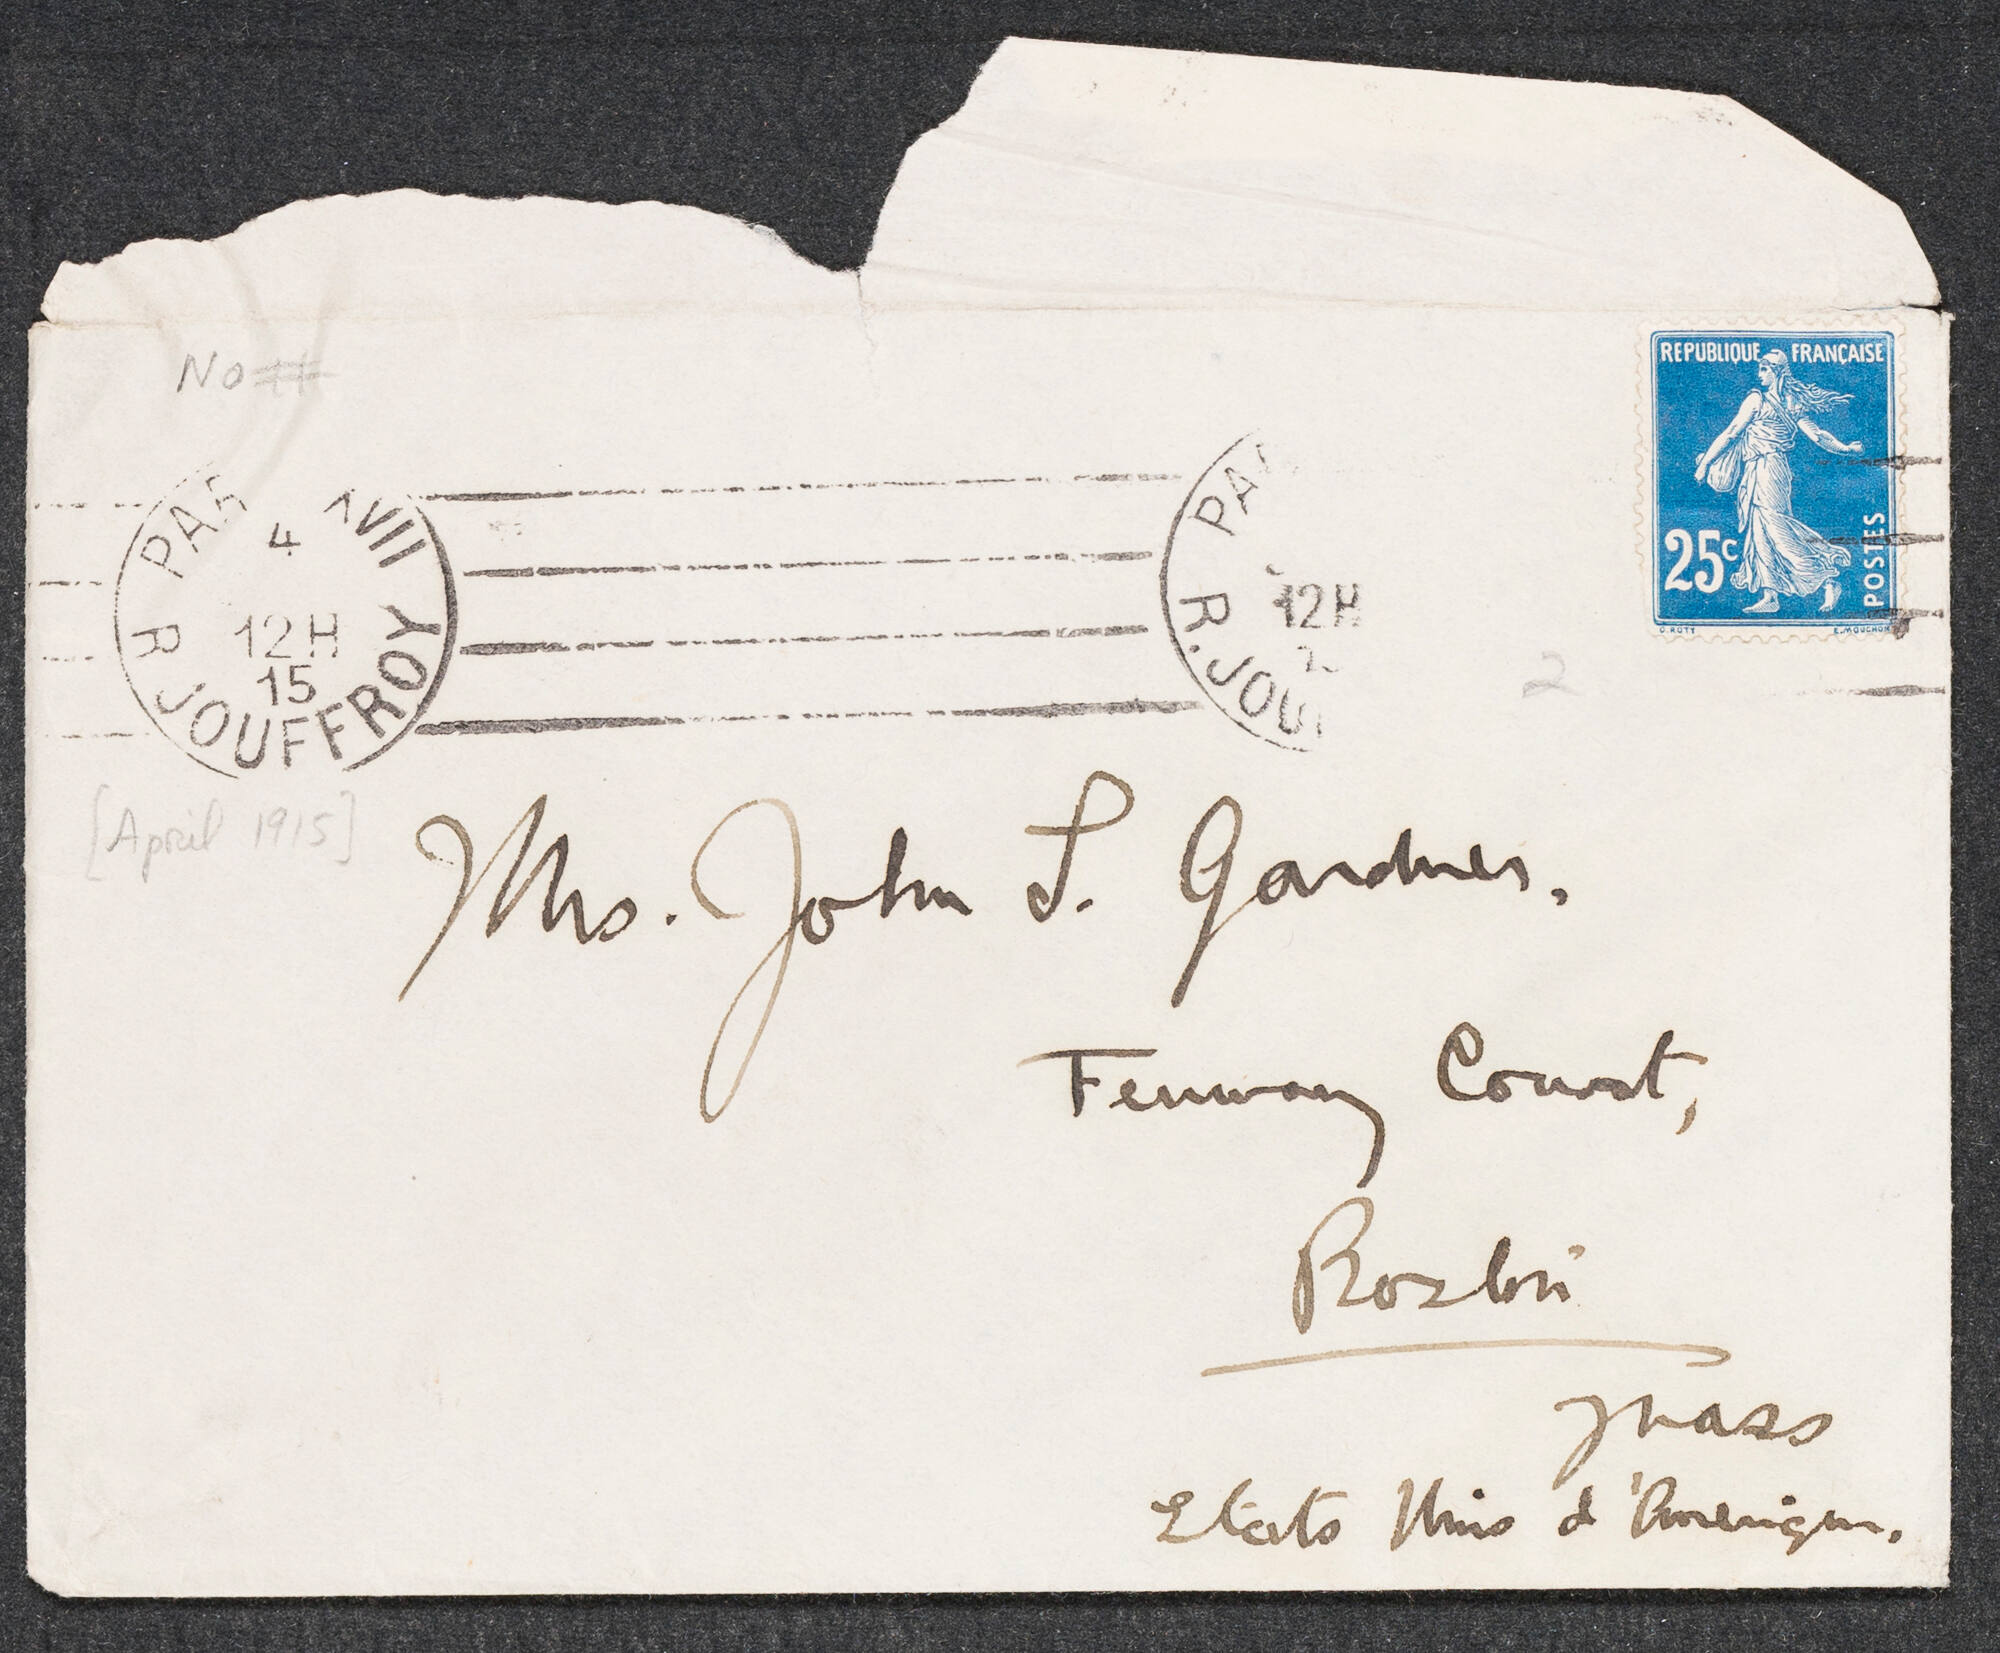 No
REPUBLIQUE FRANÇAISE
25c
POSTES
O. ROTY
E. MOUCHON
PAR XVII
4
12H
15
R. JOUFFROY
PA
12H
R. JOU
2
[April 1915]
Mrs. John L. Gardner,
Fenway Court,
Boston
Mass
Etats Unis d'Amerique.